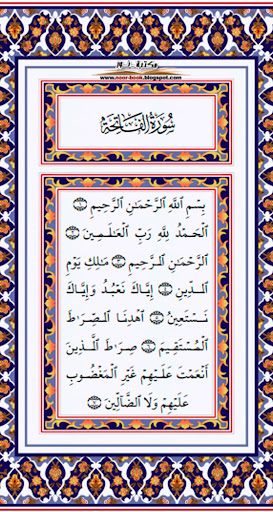 www.noor-book.blogspot.com
سُورَةُ الْفَاتِحَة
بِسْمِ ٱللَّهِ ٱلرَّحْمَٰنِ ٱلرَّحِيمِ ۝
ٱلْحَمْدُ لِلَّهِ رَبِّ ٱلْعَٰلَمِينَ ۝
ٱلرَّحْمَٰنِ ٱلرَّحِيمِ ۝ مَٰلِكِ يَوْمِ
ٱلدِّينِ ۝ إِيَّاكَ نَعْبُدُ وَإِيَّاكَ
نَسْتَعِينُ ۝ ٱهْدِنَا ٱلصِّرَٰطَ
ٱلْمُسْتَقِيمَ ۝ صِرَٰطَ ٱلَّذِينَ
أَنْعَمْتَ عَلَيْهِمْ غَيْرِ ٱلْمَغْضُوبِ
عَلَيْهِمْ وَلَا ٱلضَّآلِّينَ ۝